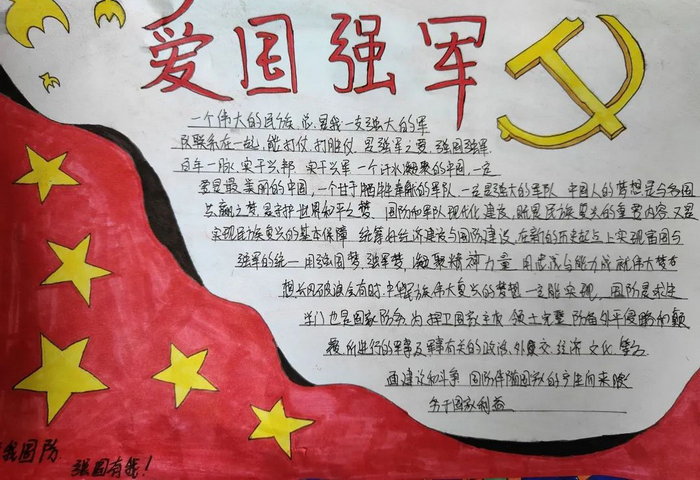 爱国强军
一个伟大的民族,总是和一支强大的军
队联系在一起,能打仗,打胜仗,是强军之要,强国强军
百年一脉,实干兴邦,实干兴军一个汗水凝聚的中国,一定
会是最美丽的中国,一个甘于牺牲奉献的军队,一定是强大的军队,中国人的梦想是与各国
共赢之梦是守护世界和平之梦,国防和军队现代化建设,既是民族复兴的重要内容,又是
实现民族复兴的基本保障,统筹好经济建设与国防建设,在新的历史起点上实现富国与
强军的统一,用强国梦,强军梦,凝聚精神力量,用忠诚与能力成就伟大梦
想长风破浪会有时,中华民族伟大复兴的梦想一定能实现,国防是
也是国家防务为捍卫国家主权,领土完整,防备外来侵略和颠
覆,所进行的军事及军事有关的政治,外交,经济,文化,等
面建设和斗争,国防伴随国家的产生而来,服
务于国家利益
我国防
强国有我!